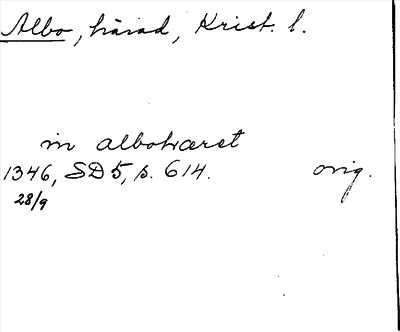 Albo, härad, Krist. l.
in albohæret
1346, SD 5, s. 614. orig.
28/9